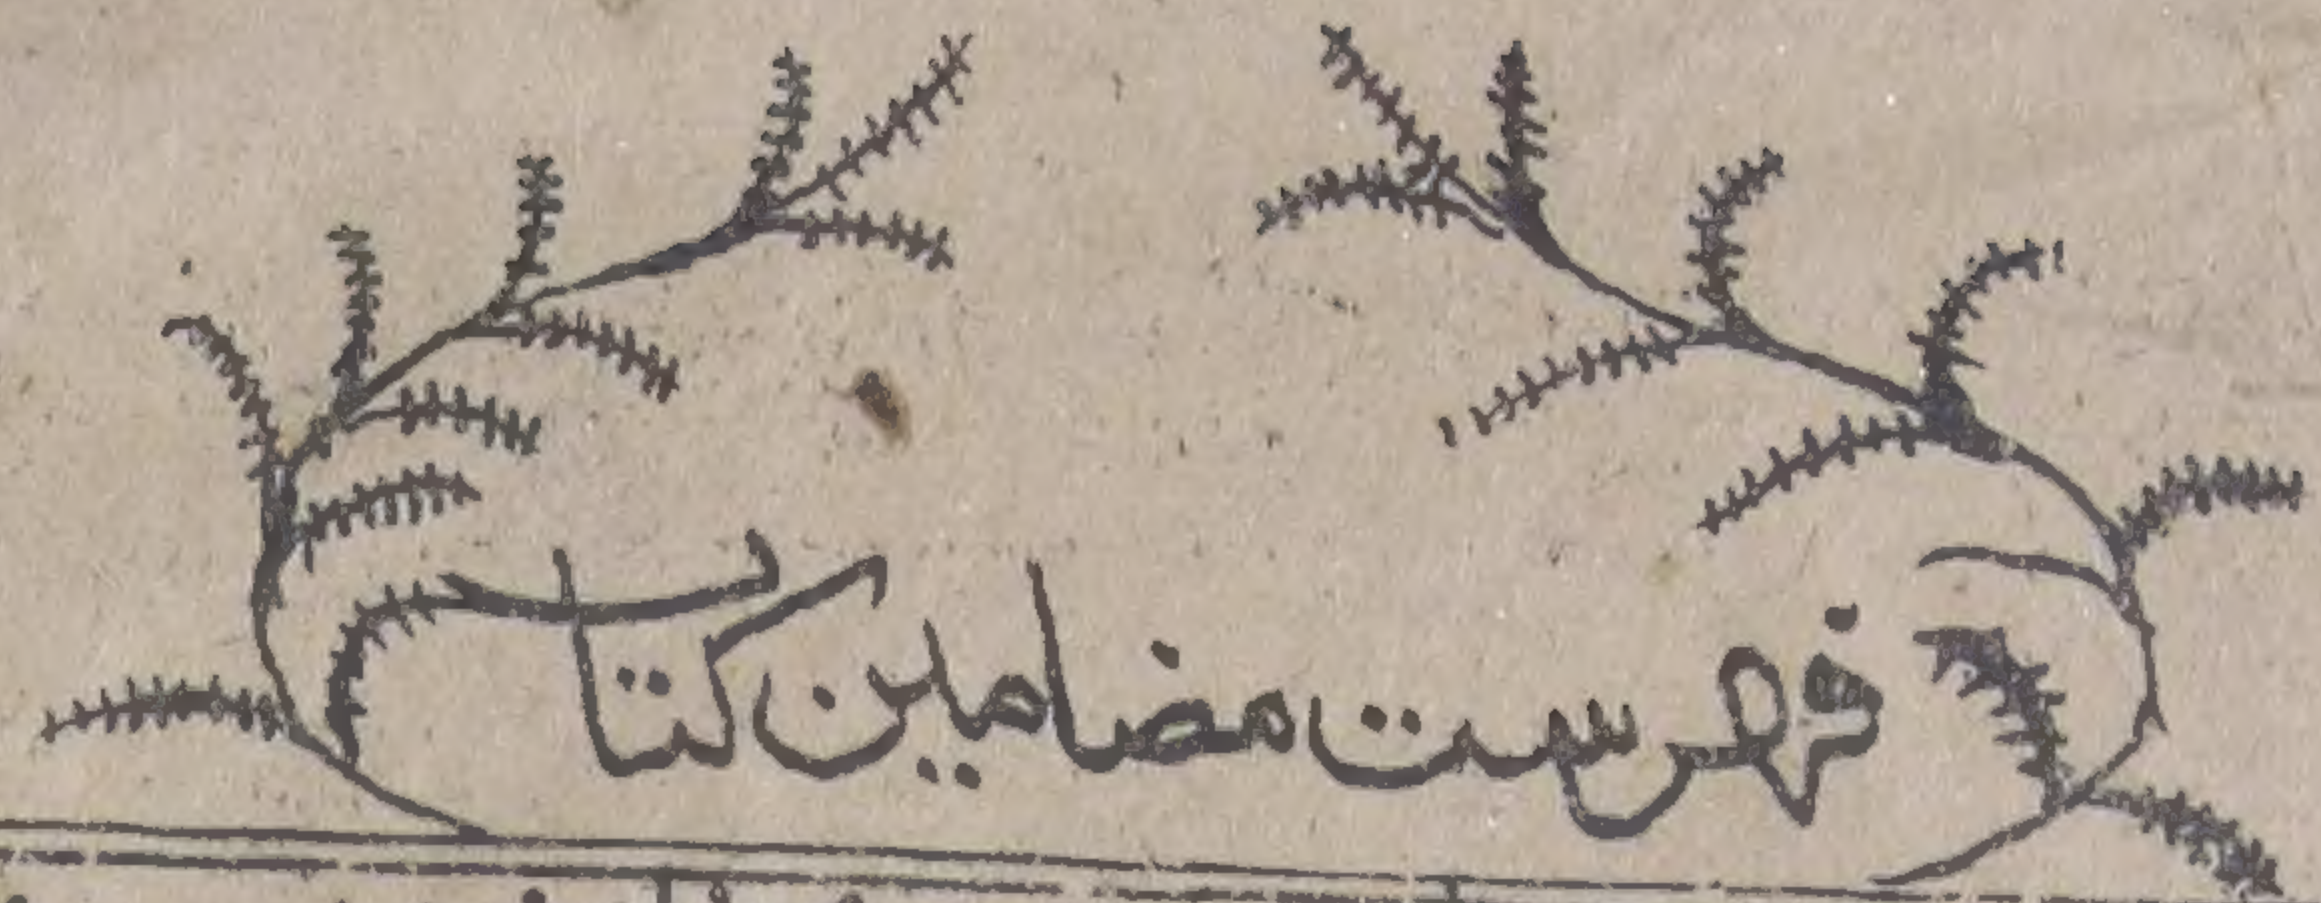 فهرست مضامین کتاب